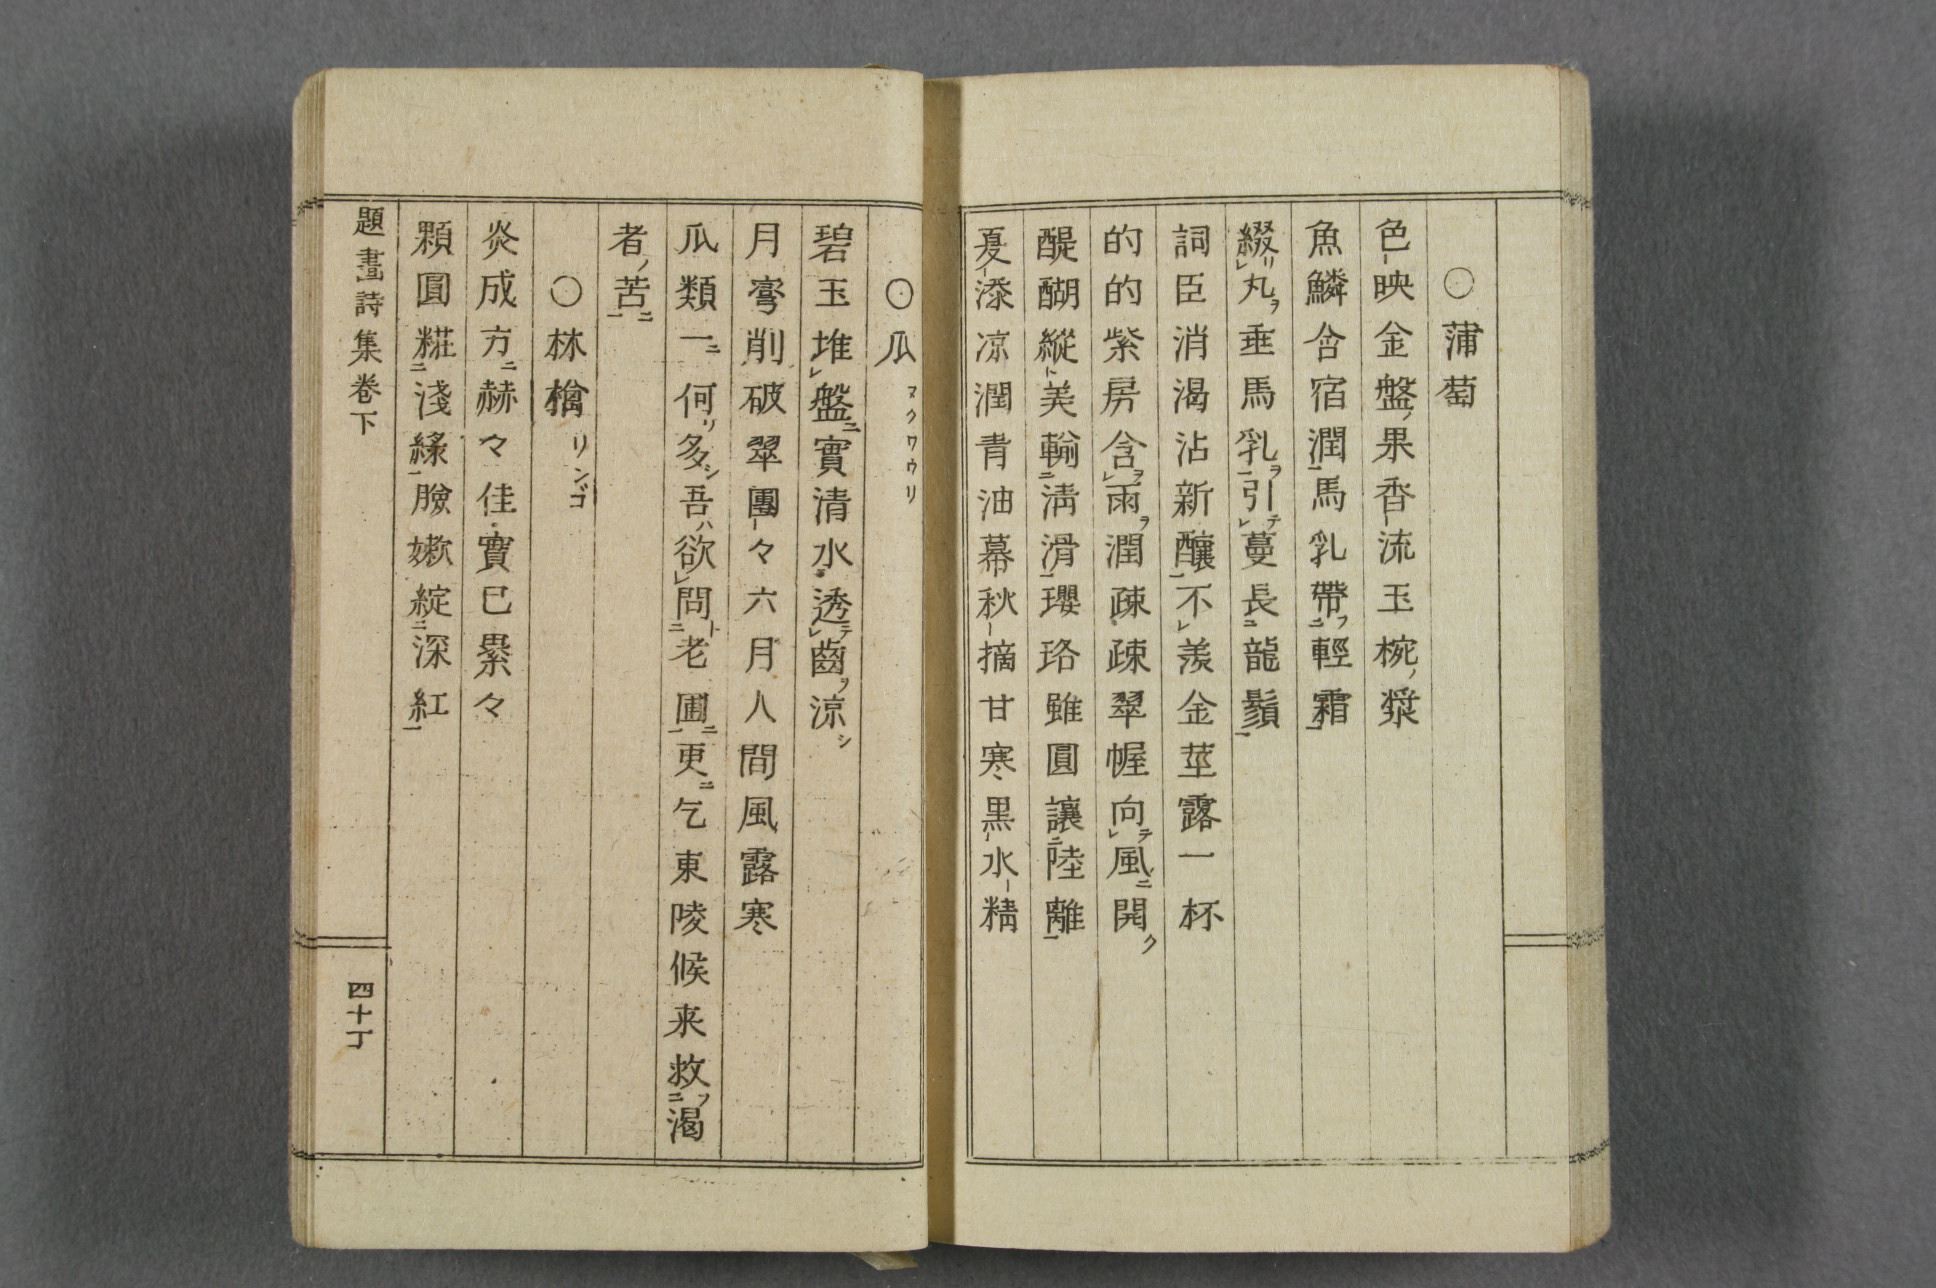 〇蒲萄
色映金盤果香流玉椀漿
魚鱗含宿潤馬乳帶輕霜
綴丸垂馬乳引蔓長龍鬚
詞臣消渴沾新釀不羨金莖露一杯
的的紫房含雨潤疎疎翠幄向風開
醍醐縱美輸淸滑瓔珞雖圓讓陸離
夏漆凉潤青油幕秋摘甘寒黒水精
〇瓜 マクワウリ
碧玉堆盤實清水透齒凉シ
月彎削破翠團々六月人間風露寒
瓜類一何多吾欲問老圃更乞東陵候来救渴
者苦
〇林檎 リンゴ
炎成方赫々佳實已纍々
顆圓糚淺緑臉嫩綻深紅
題畫詩集卷下
四十丁